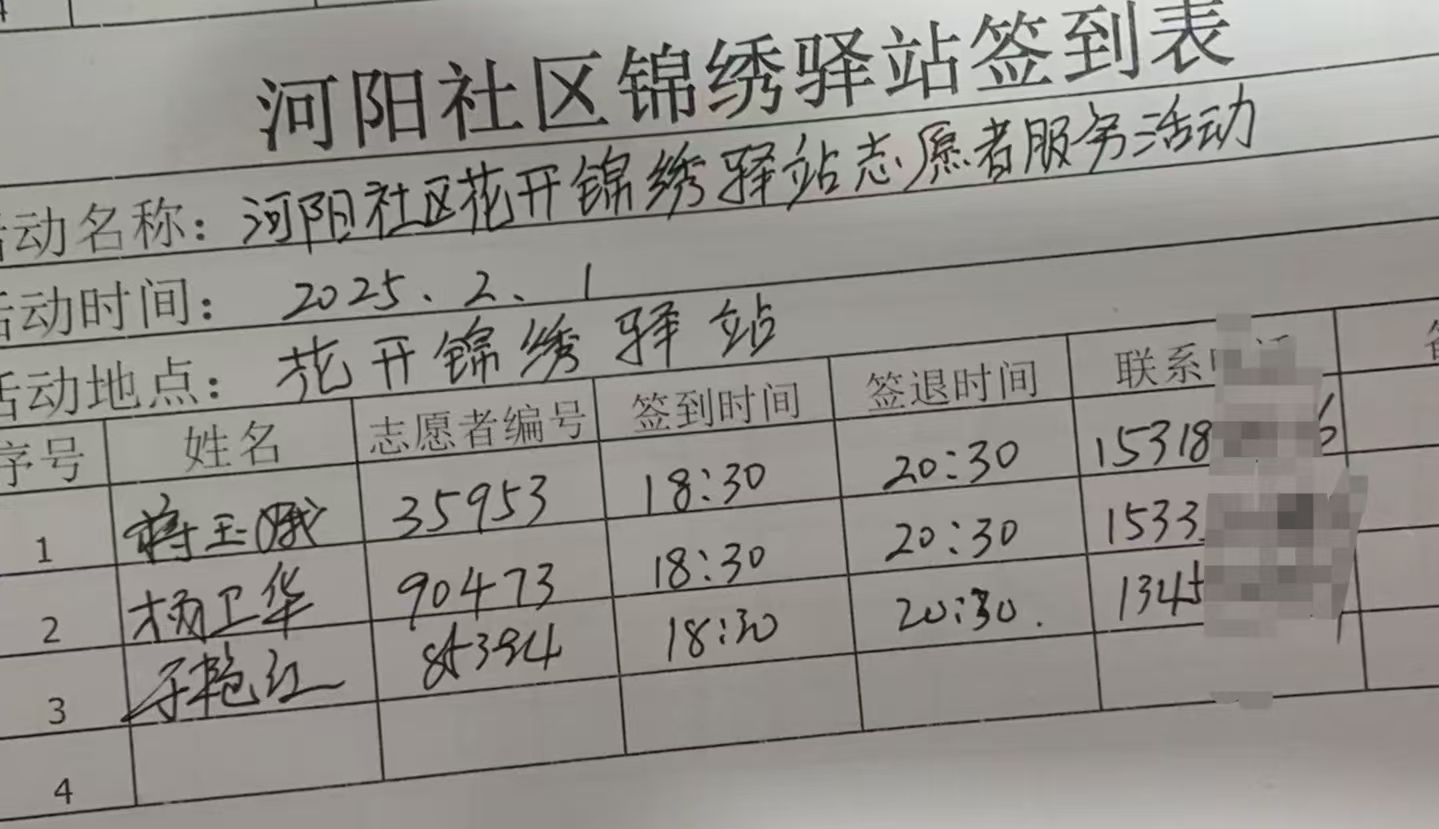 河阳社区锦绣驿站签到表
活动名称：河阳社区花开锦绣驿站志愿者服务活动
活动时间：2025.2.1
活动地点：花开锦绣驿站
序号 姓名 志愿者编号 签到时间 签退时间 联系
1 蒋玉娥 35953 18:30 20:30 15318 6
2 杨卫华 90473 18:30 20:30 1533
3 于艳红 18:30 20:30. 1345
4